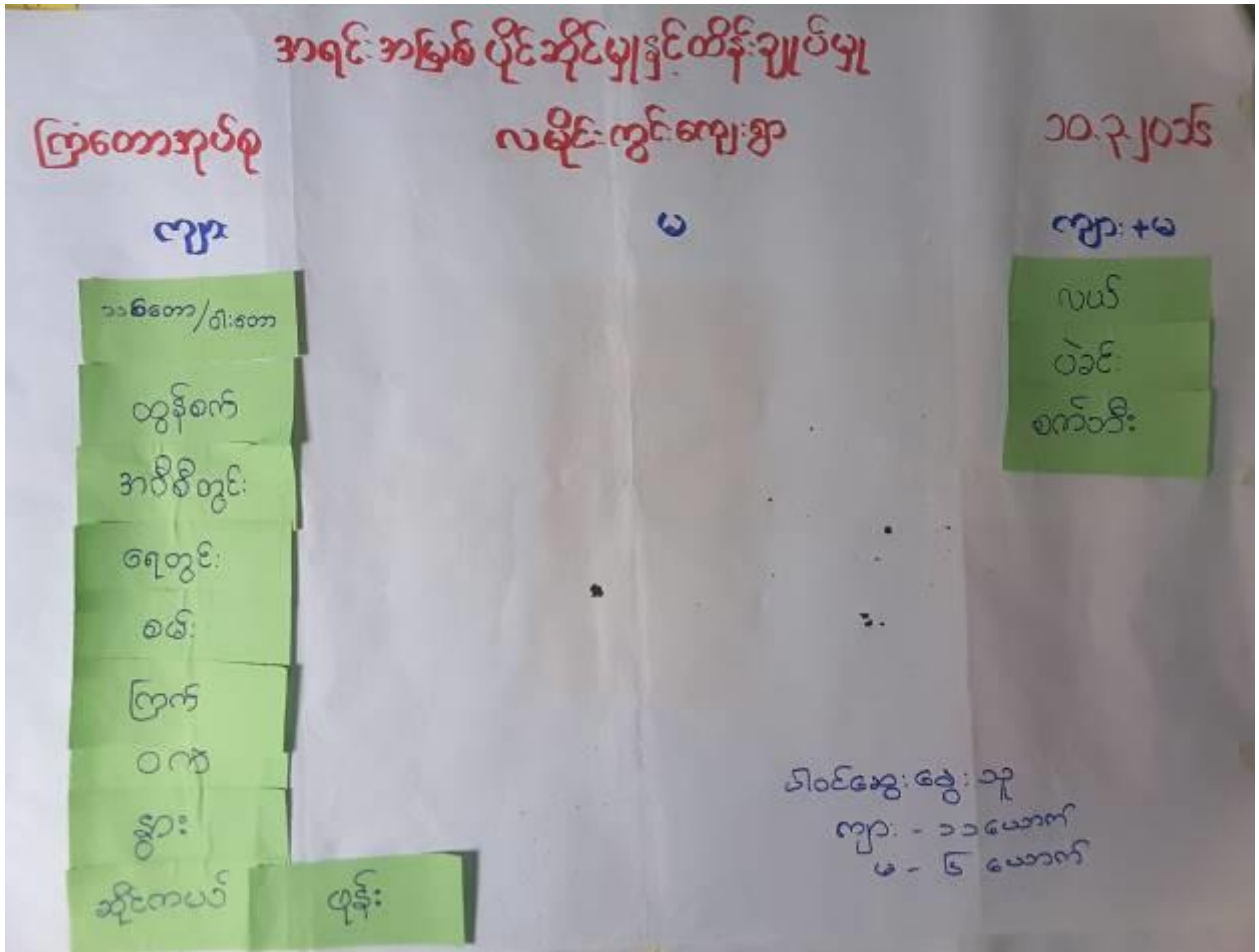 အရင်းအမြစ် ပိုင်ဆိုင်မှုနှင့်ထိန်းချုပ်မှု
ကြံတောအုပ်စု လမိုင်းကွင်းကျေးရွာ ၁၀.၃.၂၀၁၆
ကျား မ ကျား+မ
သစ်တော/ဝါးတော
ထွန်စက်
အဝီစိတွင်း
ရေတွင်း
စမ်း
ကြက်
ဝက်
နွား
ဆိုင်ကယ် ဖုန်း
လယ်
ပဲခင်း
စက်ဘီး
ပါဝင်ဆွေးနွေးသူ
ကျား - ၁၁ယောက်
မ - ၆ ယောက်